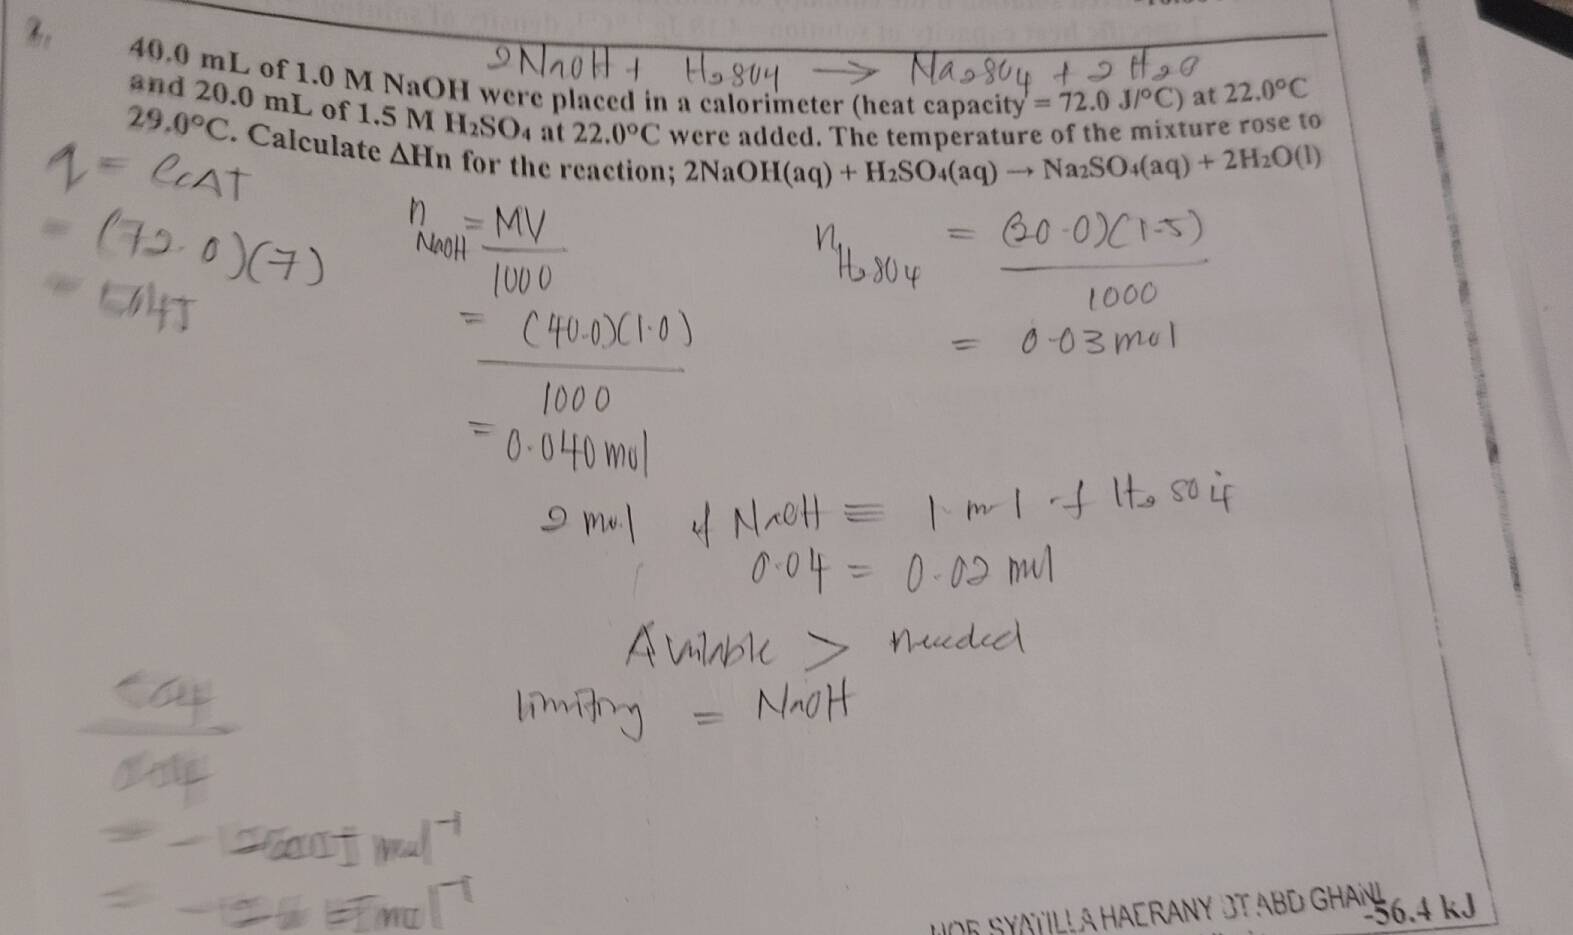 2.
2NaOH + H2SO4 → Na2SO4 + 2H2O
40.0 mL of 1.0 M NaOH were placed in a calorimeter (heat capacity = 72.0 J/°C) at 22.0°C
and 20.0 mL of 1.5 M H₂SO₄ at 22.0°C were added. The temperature of the mixture rose to
29.0°C. Calculate ΔHn for the reaction; 2NaOH(aq) + H₂SO₄(aq) → Na₂SO₄(aq) + 2H₂O(l)
q = CcΔT
= (72.0)(7)
= 504J
n NaOH = MV
1000
= (40.0)(1.0)
1000
= 0.040 mol
n H2SO4 = (20.0)(1.5)
1000
= 0.03 mol
2 mol of NaOH ≡ 1 mol of H2SO4
0.04 = 0.02 mol
Available > needed
limiting = NaOH
504
mol⁻¹
mol⁻¹
NOR SYATILLA HAERANY BT ABD GHANI
-56.4 kJ